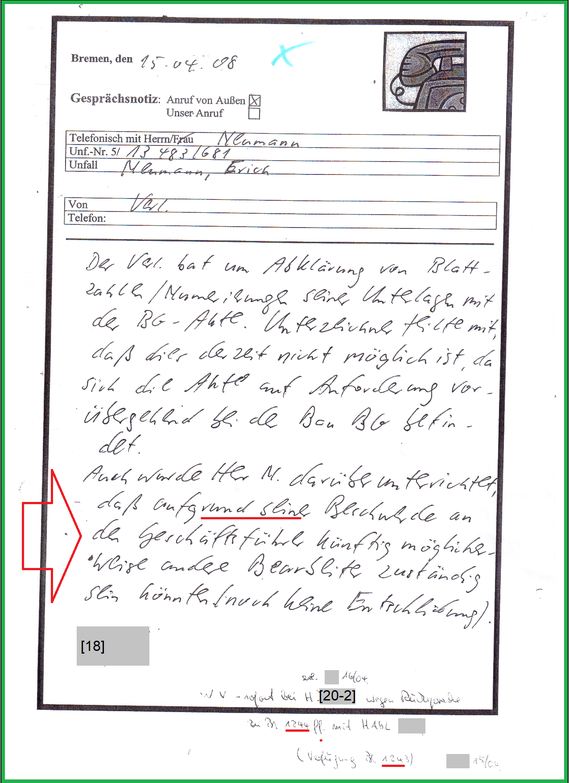 Bremen, den 15.04.08
Gesprächsnotiz: Anruf von Außen ☒
Unser Anruf ☐
Telefonisch mit Herrn/Frau Neumann
Unf.-Nr. 5/ 13 483/681
Unfall Neumann, Erich
Von Verl.
Telefon:
Der Verl. bat um Abklärung von Blatt-
zahlen/Numerierungen seiner Unterlagen mit
der BG-Akte. Unterzeichner teilte mit,
daß dies derzeit nicht möglich ist, da
sich die Akte auf Anforderung vor-
übergehend bei der Bau BG befin-
det.
Auch wurde Herr N. darüber unterrichtet,
daß aufgrund seiner Beschwerde an
den Geschäftsführer künftig möglicher-
weise andere Bearbeiter zuständig
sein könnten (noch keine Entscheidung).
[18]
16/04
WV - sofort bei H [20-2] wegen Rücksprache
zu Bl. 1244 ff. mit HAbL
(Verfügung Bl. 1243) 15/04